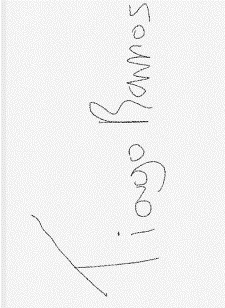 Tiago Ramos